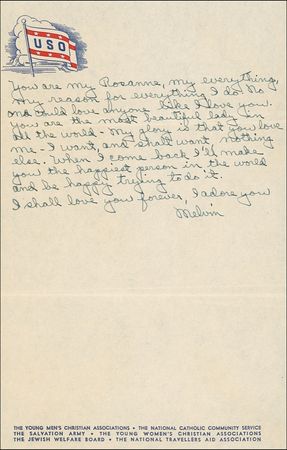 USO
You are my Rosanne, my everything,
my reason for everything I do. No
one could love anyone like I love you.
You are the most beautiful lady in
all the world - My glory is that you love
me - I want, and shall want, nothing
else. When I come back I'll make
you the happiest person in the world
and be happy trying to do it.
I shall love you forever, I adore you
Melvin
THE YOUNG MEN'S CHRISTIAN ASSOCIATIONS • THE NATIONAL CATHOLIC COMMUNITY SERVICE
THE SALVATION ARMY • THE YOUNG WOMEN'S CHRISTIAN ASSOCIATIONS
THE JEWISH WELFARE BOARD • THE NATIONAL TRAVELLERS AID ASSOCIATION